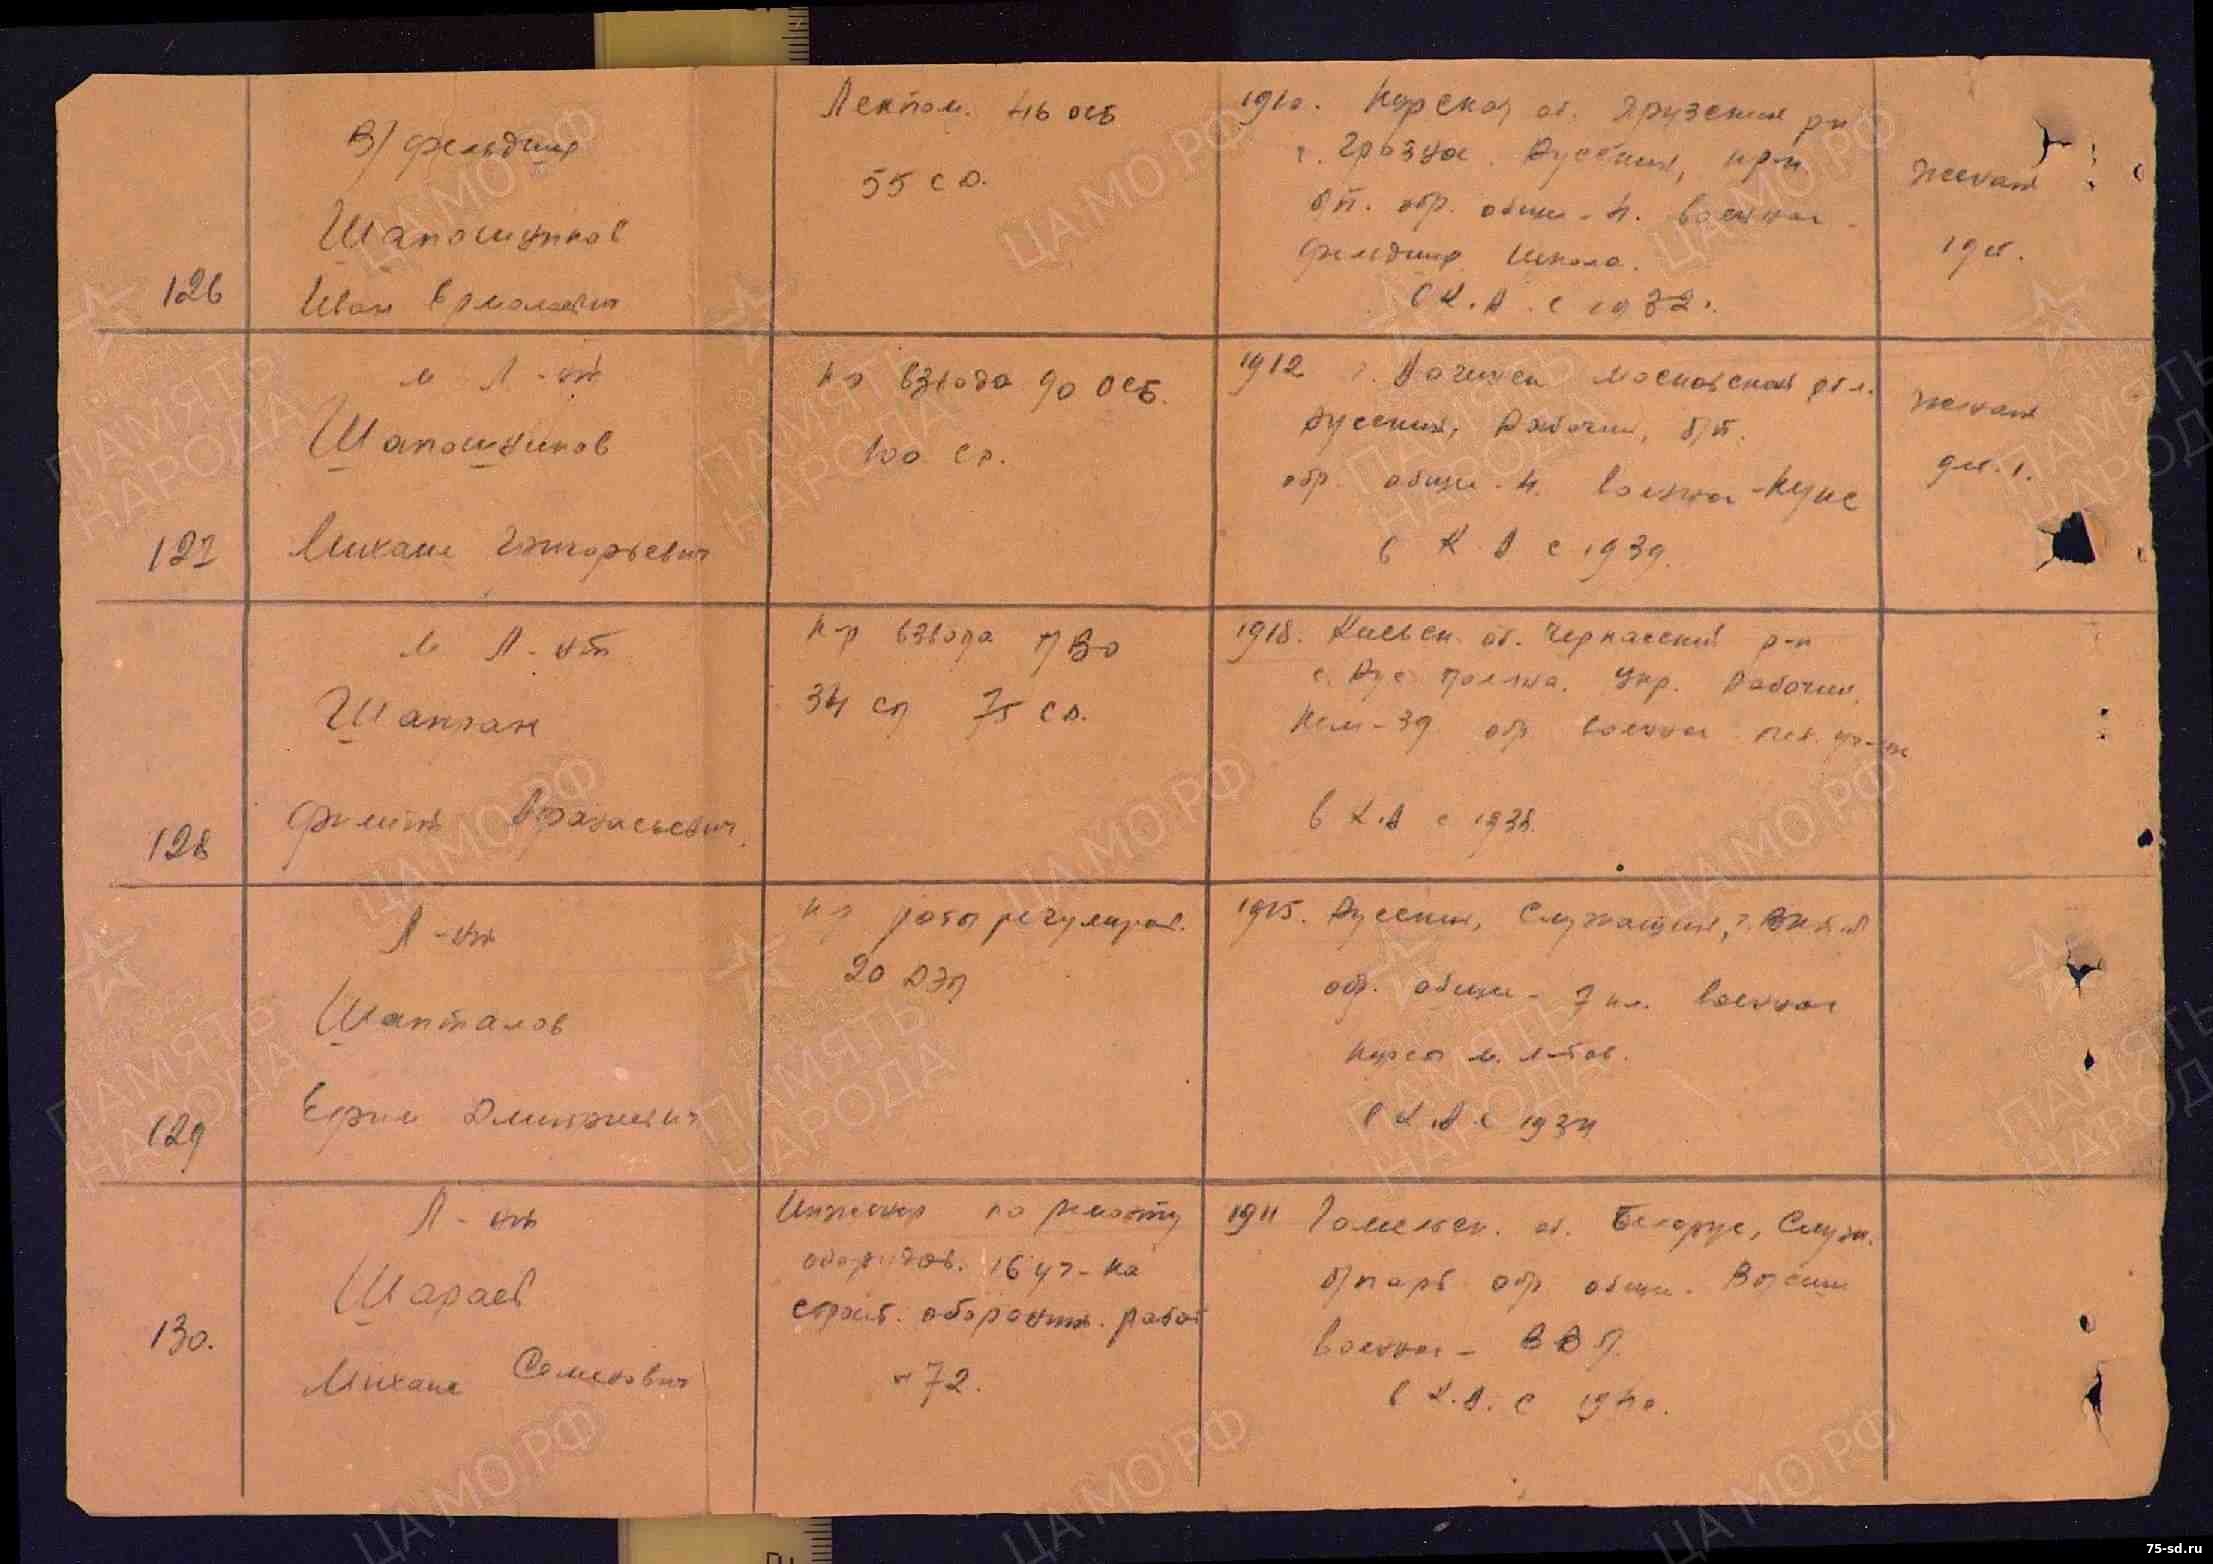 126
В/фельдшер
Шапошников
Иван Ермолаевич
Лекпом. 46 осб
55 сд.
1910. Курская об. р-н
Русский, кр-н
б/п. обр. общ.-н. военное -
фельдшер школа.
в К.А. с 1932.
женат
127
м л-нт
Шапошников
Михаил Григорьевич
к-р взвода 90 осб.
100 сд.
1912 Московской обл.
Русский, Рабочий, б/п.
обр. общ.-н. военное - курс
в К.А с 1939.
женат
128
м л-нт
Шапран
Филипп Афанасьевич
к-р взвода ПВО
34 сп 75 сд.
1918. Киевск. об. Черкасский р-н
с. Рус Поляна. Укр. Рабочий,
обр военное пех. уч-ще
в К.А с 1938.
129
л-нт
Шапталов
Ефим Дмитриевич
к-р роты регулиров.
20 ДЭП
1915. Русский, Служащий,
обр. общее - 7 кл. военное
курсы м. л-тов.
в К.А. с 1934
130.
л-нт
Шараев
Михаил Семенович
Инженер по ремонту
оборудов. 16 уч-ка
строит. оборонит. работ
-72.
1911 Гомельск. об. Белорус, Служ.
б/парт обр общ. Высш
военное - ВВП.
в К.А. с 1940.
ЦАМО РФ
ПАМЯТЬ
НАРОДА
75-sd.ru